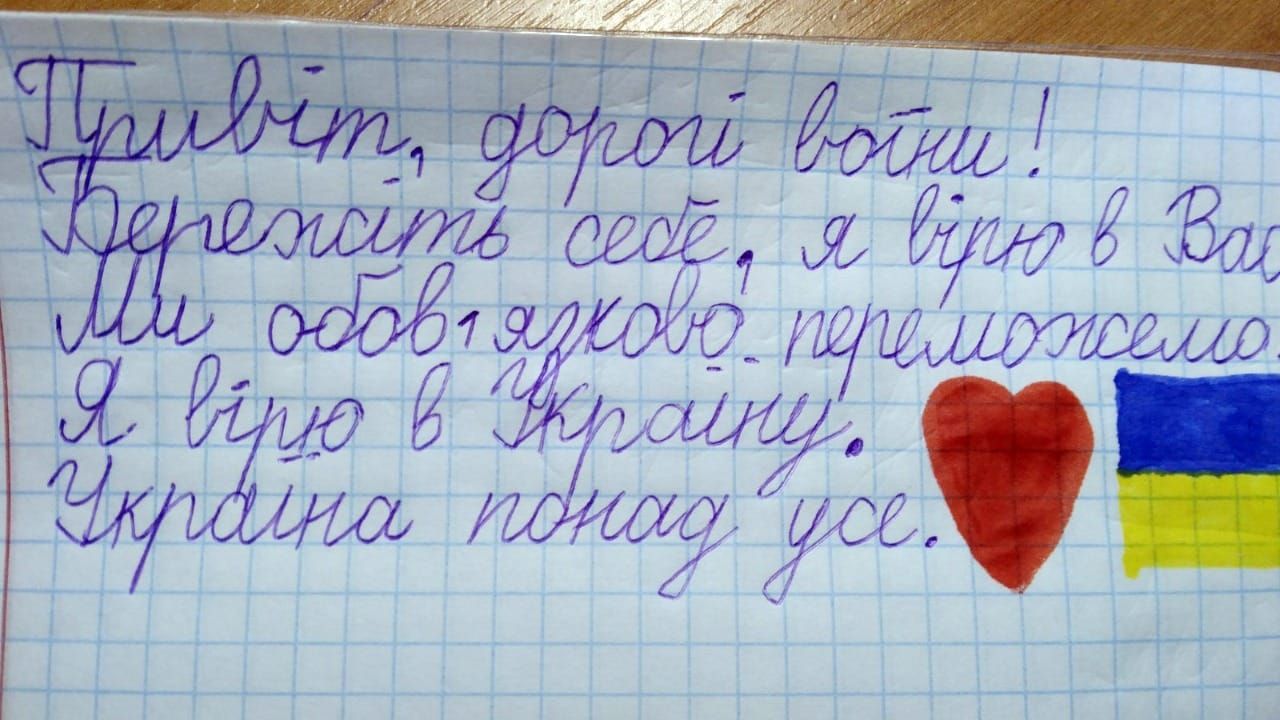 Привіт, дорогі воїни!
Бережіть себе, я вірю в Вас
Ми обов'язково переможемо.
Я вірю в Україну.
Україна понад усе.